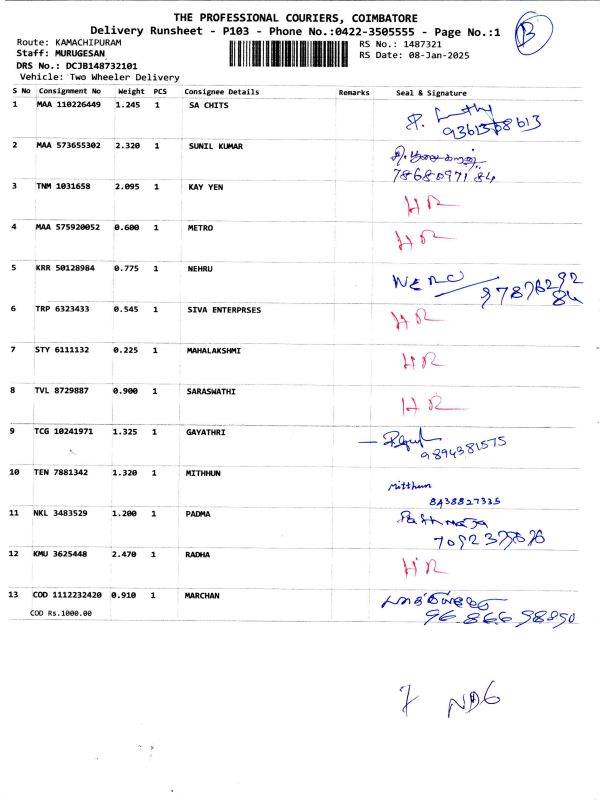 THE PROFESSIONAL COURIERS, COIMBATORE
B
Delivery Runsheet - P103 - Phone No.:0422-3505555 - Page No.:1
Route: KAMACHIPURAM
RS No.: 1487321
Staff: MURUGESAN
RS Date: 08-Jan-2025
DRS No.: DCJB148732101
Vehicle: Two Wheeler Delivery
S No Consignment No Weight PCS Consignee Details Remarks Seal & Signature
1 MAA 110226449 1.245 1 SA CHITS
2 MAA 573655302 2.320 1 SUNIL KUMAR
3 TNM 1031658 2.095 1 KAY YEN HR
4 MAA 575920052 0.600 1 METRO HR
5 KRR 50128984 0.775 1 NEHRU
6 TRP 6323433 0.545 1 SIVA ENTERPRSES HR
7 STY 6111132 0.225 1 MAHALAKSHMI HR
8 TVL 8729887 0.900 1 SARASWATHI HR
9 TCG 10241971 1.325 1 GAYATHRI
9894381575
10 TEN 7881342 1.320 1 MITHHUN Mitthun
8438827335
11 NKL 3483529 1.200 1 PADMA
12 KMU 3625448 2.470 1 RADHA HR
13 COD 1112232420 0.910 1 MARCHAN
COD Rs.1000.00
7